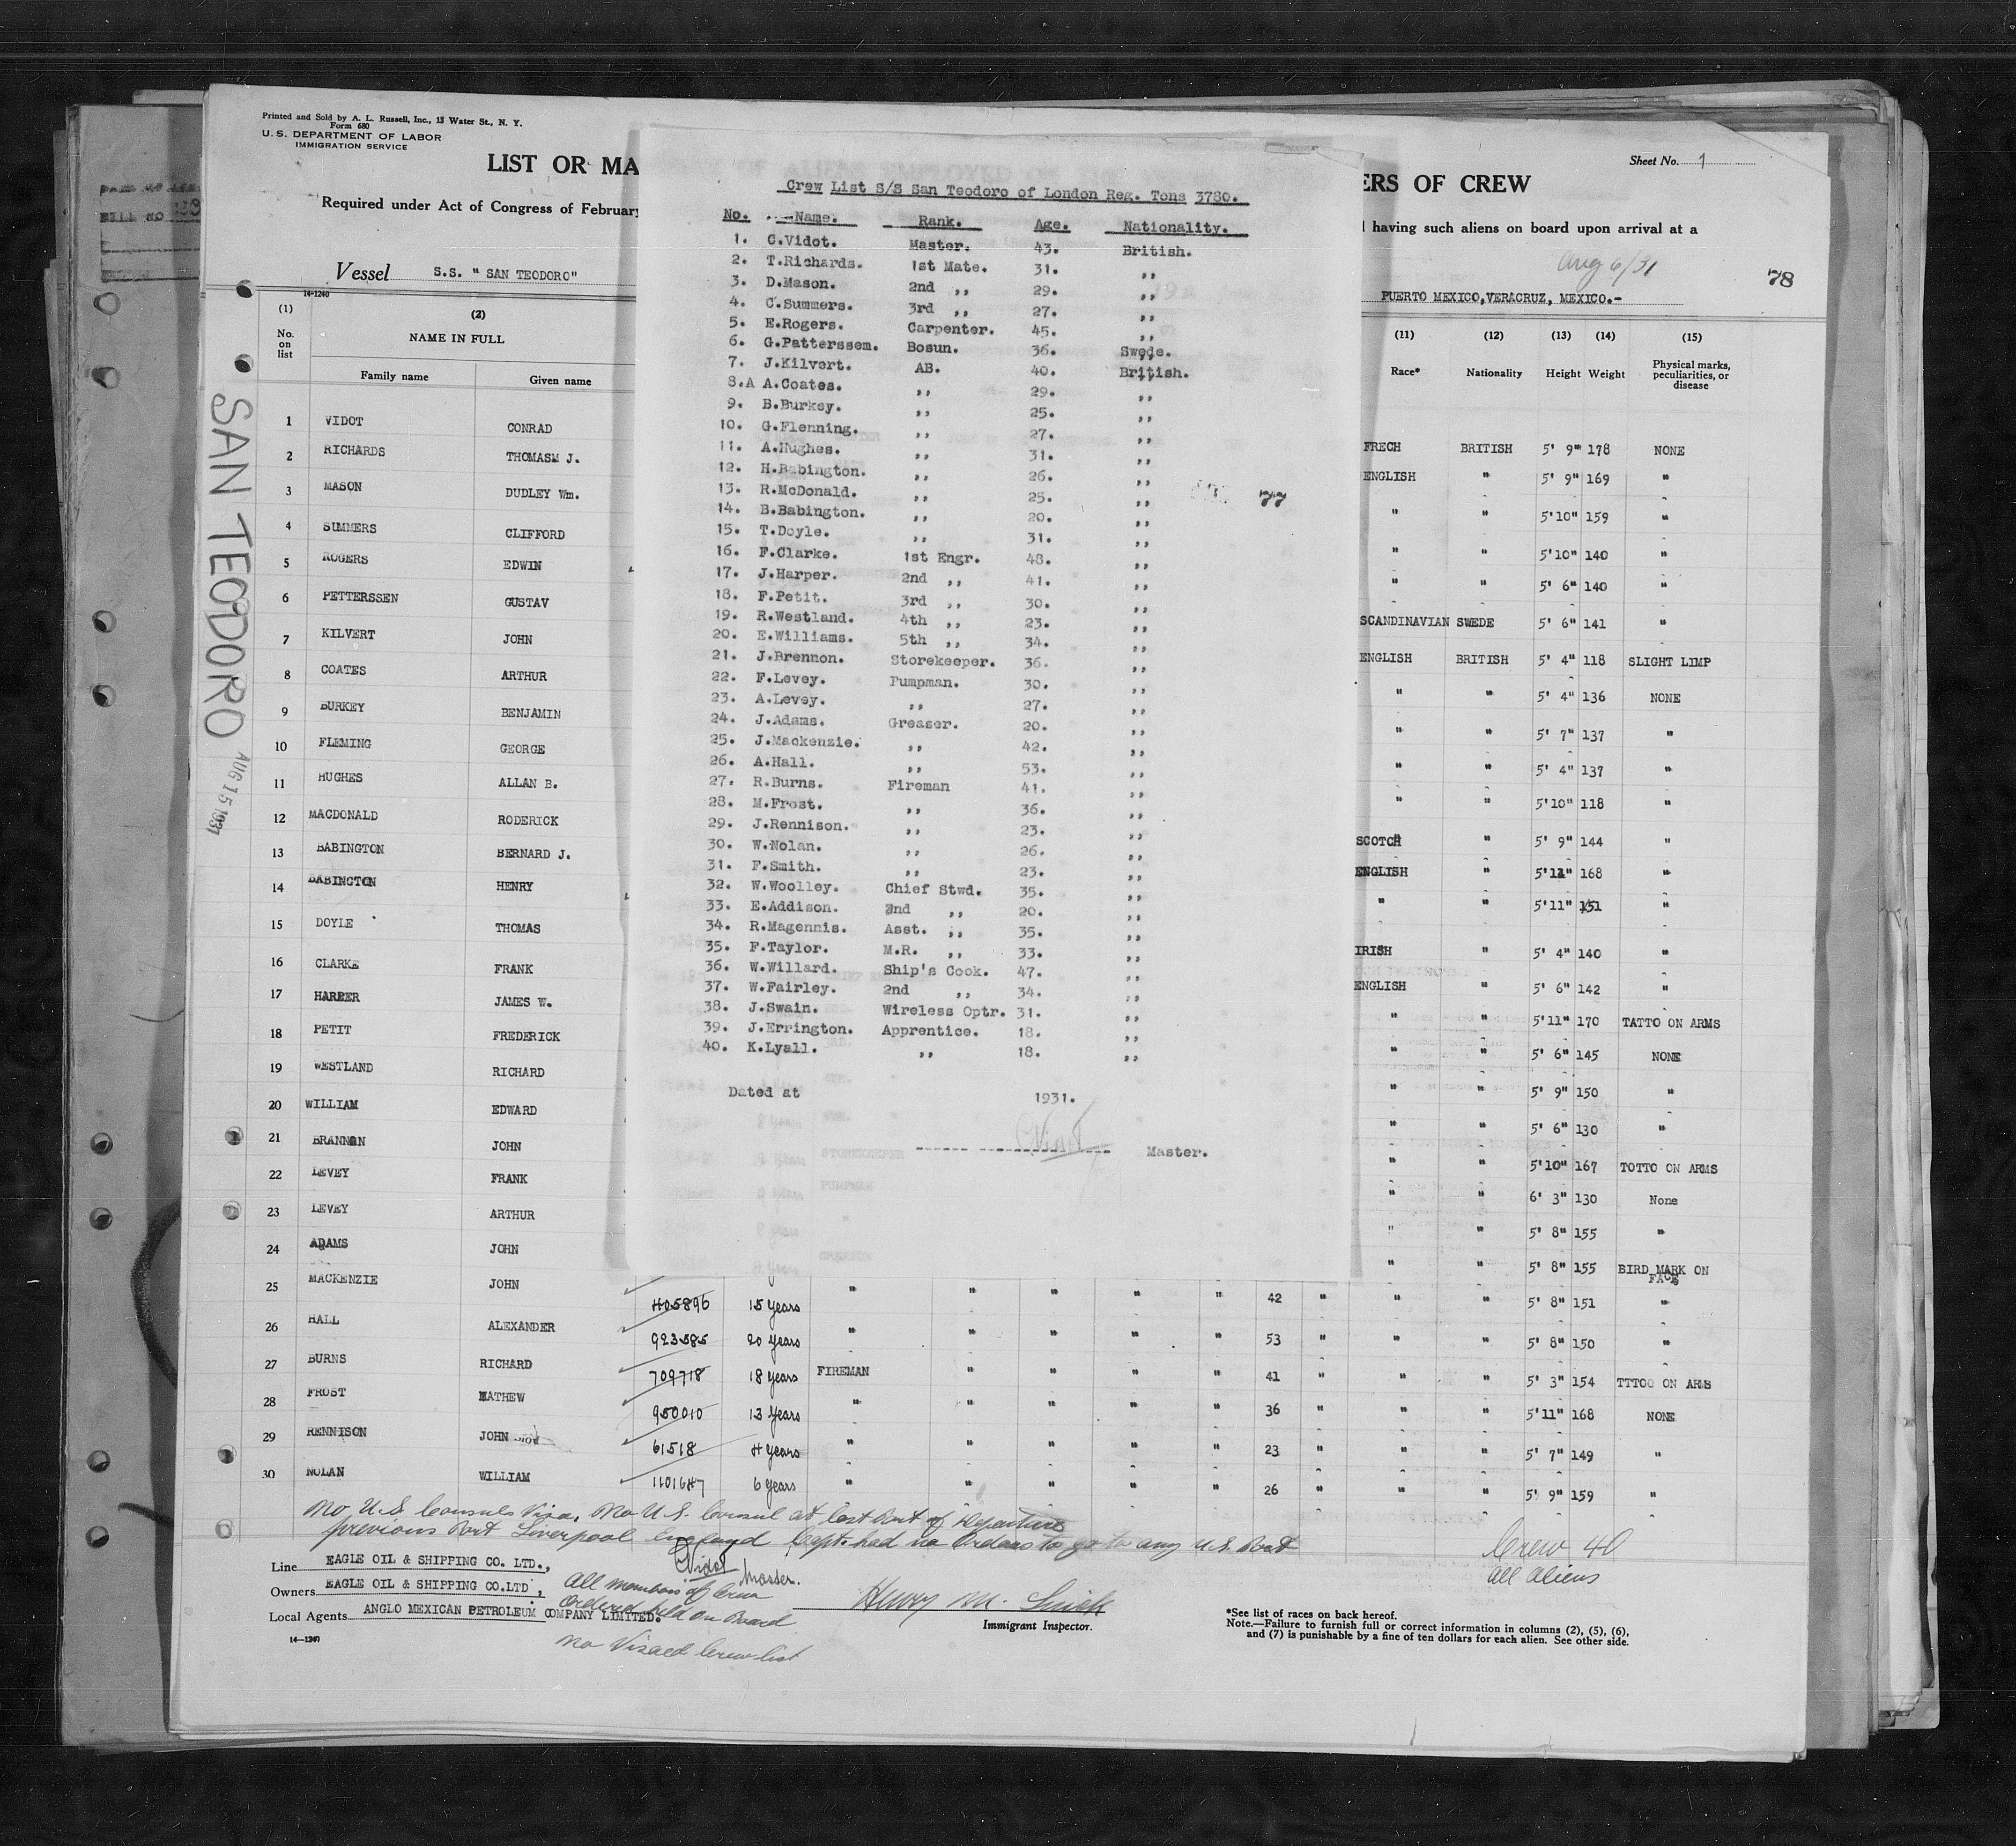 Printed and Sold by A. L. Russell, Inc., 13 Water St., N. Y.
Form 680
U.S. DEPARTMENT OF LABOR
IMMIGRATION SERVICE
Sheet No. 1
LIST OR MA
ERS OF CREW
Required under Act of Congress of February
having such aliens on board upon arrival at a
Aug 6/31
78
Vessel S.S. " SAN TEODORO"
PUERTO MEXICO, VERACRUZ, MEXICO.-
14-1240
(1) (2) (11) (12) (13) (14) (15)
No. on list NAME IN FULL Race* Nationality Height Weight Physical marks, peculiarities, or disease
Family name Given name
SAN TEODORO
AUG 15 1931
1 VIDOT CONRAD FRECH BRITISH 5' 9" 178 NONE
2 RICHARDS THOMASM J. ENGLISH " 5' 9" 169 "
3 MASON DUDLEY Wm. " " 5'10" 159 "
4 SUMMERS CLIFFORD " " 5'10" 140 "
5 ROGERS EDWIN " " 5' 6" 140 "
6 PETTERSSEN GUSTAV SCANDINAVIAN SWEDE 5' 6" 141 "
7 KILVERT JOHN ENGLISH BRITISH 5' 4" 118 SLIGHT LIMP
8 COATES ARTHUR " " 5' 4" 136 NONE
9 BURKEY BENJAMIN " " 5' 7" 137 "
10 FLEMING GEORGE " " 5' 4" 137 "
11 HUGHES ALLAN B. " " 5'10" 118 "
12 MACDONALD RODERICK SCOTCH " 5' 9" 144 "
13 BABINGTON BERNARD J. ENGLISH " 5'11" 168 "
14 BABINGTON HENRY " " 5'11" 151 "
15 DOYLE THOMAS IRISH " 5' 4" 140 "
16 CLARKE FRANK ENGLISH " 5' 6" 142 "
17 HARPER JAMES W. " " 5'11" 170 TATTO ON ARMS
18 PETIT FREDERICK " " 5' 6" 145 NONE
19 WESTLAND RICHARD " " 5' 9" 150 "
20 WILLIAM EDWARD " " 5' 6" 130 "
21 BRANNAN JOHN " " 5'10" 167 TOTTO ON ARMS
22 LEVEY FRANK " " 6' 3" 130 None
23 LEVEY ARTHUR " " 5' 8" 155 "
24 ADAMS JOHN " " 5' 8" 155 BIRD MARK ON FACE
25 MACKENZIE JOHN 405896 15 years " " " " " 42 " " " 5' 8" 151 "
26 HALL ALEXANDER 923585 20 years " " " " " 53 " " " 5' 8" 150 "
27 BURNS RICHARD 709718 18 years FIREMAN " " " " 41 " " " 5' 3" 154 TTTOO ON ARMS
28 FROST MATHEW 950010 13 years " " " " " 36 " " " 5'11" 168 NONE
29 RENNISON JOHN 61518 4 years " " " " " 23 " " " 5' 7" 149 "
30 NOLAN WILLIAM 1101647 6 years " " " " " 26 " " " 5' 9" 159 "
Crew List S/S San Teodoro of London Reg. Tons 3780.
No. Name. Rank. Age. Nationality.
1. C.Vidot. Master. 43. British.
2. T.Richards. 1st Mate. 31. ,,
3. D.Mason. 2nd ,, 29. ,,
4. C.Summers. 3rd ,, 27. ,,
5. E.Rogers. Carpenter. 45. ,,
6. G.Patterssem. Bosun. 36. Swede.
7. J.Kilvert. AB. 40. British.
8.A A.Coates. ,, 29. ,,
9. B.Burkey. ,, 25. ,,
10. G.Flenning. ,, 27. ,,
11. A.Hughes. ,, 31. ,,
12. H.Babington. ,, 26. ,,
13. R.McDonald. ,, 25. ,,
14. B.Babington. ,, 20. ,,
15. T.Doyle. ,, 31. ,,
16. F.Clarke. 1st Engr. 48. ,,
17. J.Harper. 2nd ,, 41. ,,
18. F.Petit. 3rd ,, 30. ,,
19. R.Westland. 4th ,, 23. ,,
20. E.Williams. 5th ,, 34. ,,
21. J.Brennon. Storekeeper. 36. ,,
22. F.Levey. Pumpman. 30. ,,
23. A.Levey. ,, 27. ,,
24. J.Adams. Greaser. 20. ,,
25. J.Mackenzie. ,, 42. ,,
26. A.Hall. ,, 53. ,,
27. R.Burns. Fireman 41. ,,
28. M.Frost. ,, 36. ,,
29. J.Rennison. ,, 23. ,,
30. W.Nolan. ,, 26. ,,
31. F.Smith. ,, 23. ,,
32. W.Woolley. Chief Stwd. 35. ,,
33. E.Addison. 2nd ,, 20. ,,
34. R.Magennis. Asst. ,, 35. ,,
35. F.Taylor. M.R. ,, 33. ,,
36. W.Willard. Ship's Cook. 47. ,,
37. W.Fairley. 2nd ,, 34. ,,
38. J.Swain. Wireless Optr. 31. ,,
39. J.Errington. Apprentice. 18. ,,
40. K.Lyall. ,, 18. ,,
77
Dated at 1931.
CVidot Master.
No U.S. Consuls Visa. No U.S. Consul at last Port of Departure
previous Port Liverpool England Capt. had no Orders to go to any U.S. Port
CVidot Master.
Crew 40
all aliens
Line EAGLE OIL & SHIPPING CO. LTD.,
Owners EAGLE OIL & SHIPPING CO.LTD ,
Local Agents ANGLO MEXICAN PETROLEUM COMPANY LIMITED.
14-1240
All members of Crew
Ordered held on Board
No Visaed Crew list
Henry M.
Immigrant Inspector.
*See list of races on back hereof.
Note.—Failure to furnish full or correct information in columns (2), (5), (6),
and (7) is punishable by a fine of ten dollars for each alien. See other side.